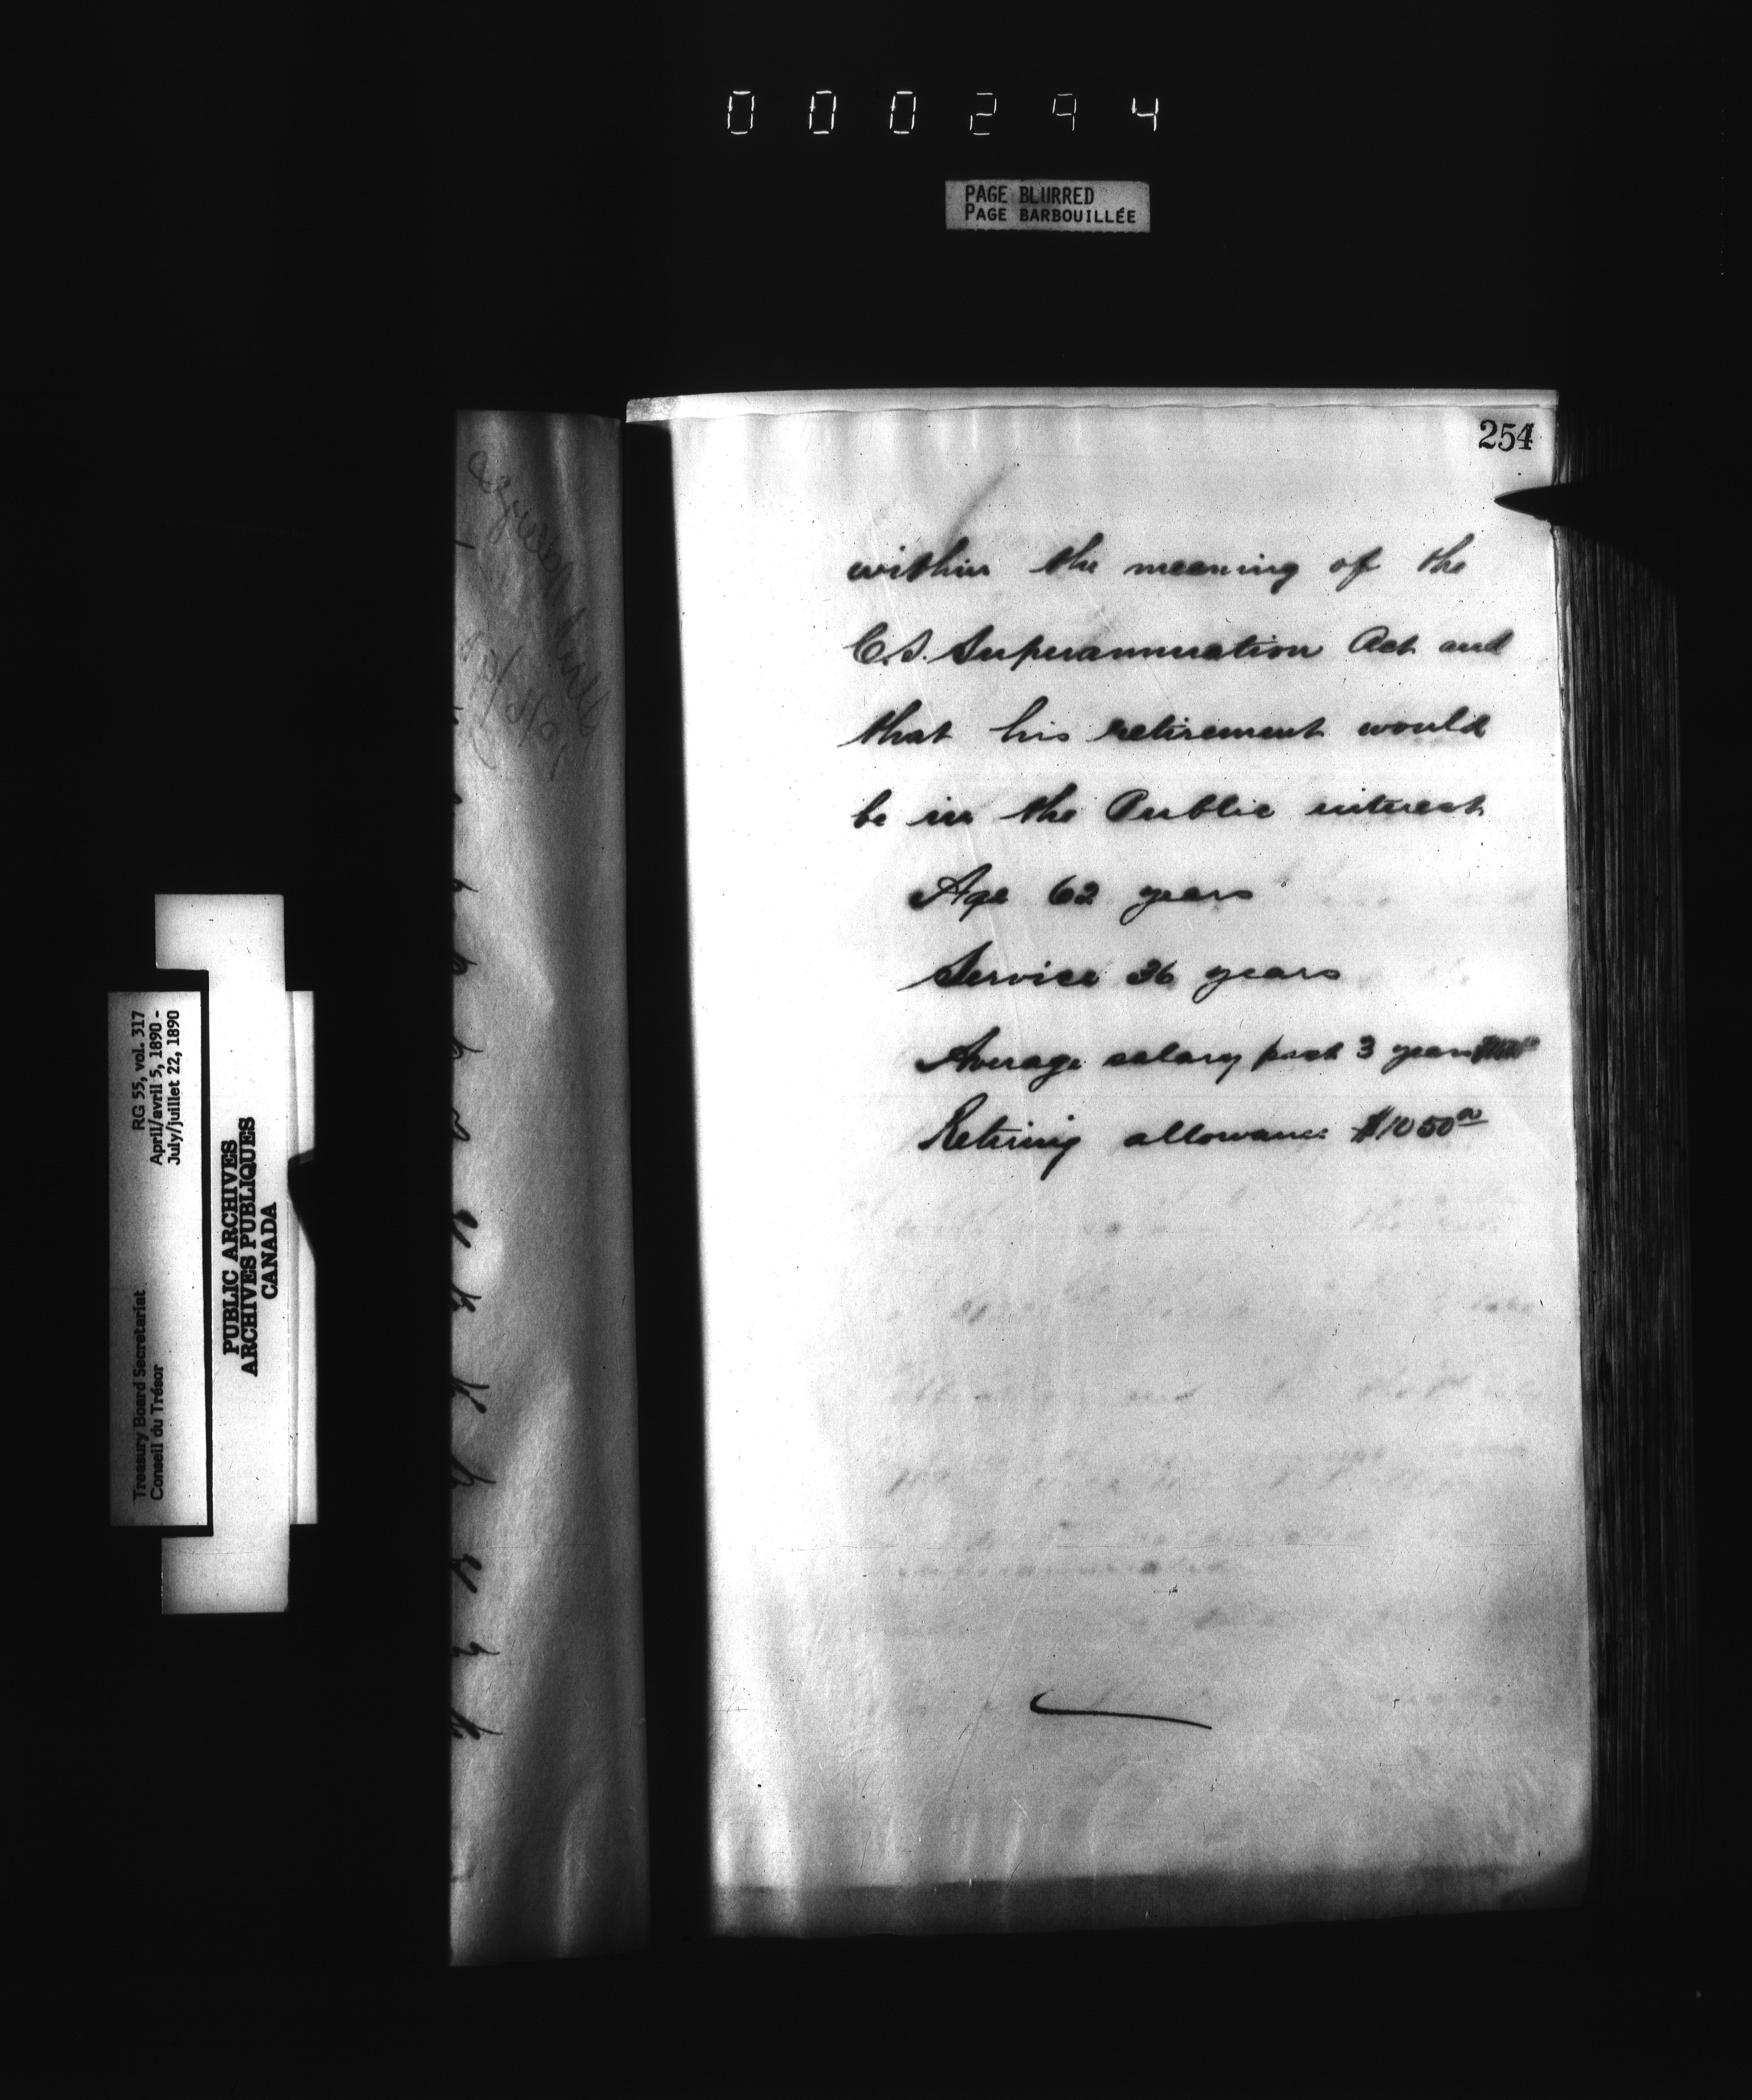 000294
PAGE BLURRED
PAGE BARBOUILLÉE
254
within the meaning of the
C.S. Superannuation Act and
that his retirement would
be in the Public interest
Age 62 years
Service 36 years
Average salary past 3 years
Retiring allowance $1050 00
RG 55, vol. 317
April/avril 5, 1890 -
July/juillet 22, 1890
Treasury Board Secretariat
Conseil du Trésor
PUBLIC ARCHIVES
ARCHIVES PUBLIQUES
CANADA